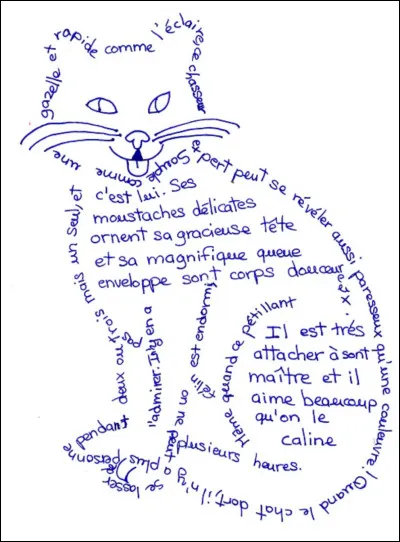 Souple comme une
gazelle et rapide comme l'éclaire, ce chasseur
expert peut se révéler aussi paresseux qu'une couleuvre! Quand le chat dort, il n'y a plus personne pendant
plusieurs heures.
Même quand ce pétillant
félin est endormi,
on ne peut
se lasser de
l'admirer. Il n'y en a
pas deux ou trois mais un seul, et
c'est lui. Ses
moustaches délicates
ornent sa gracieuse tête
et sa magnifique queue
enveloppe sont corps douceur
Il est trés
attacher à sont
maître et il
aime beaucoup
qu'on le
caline